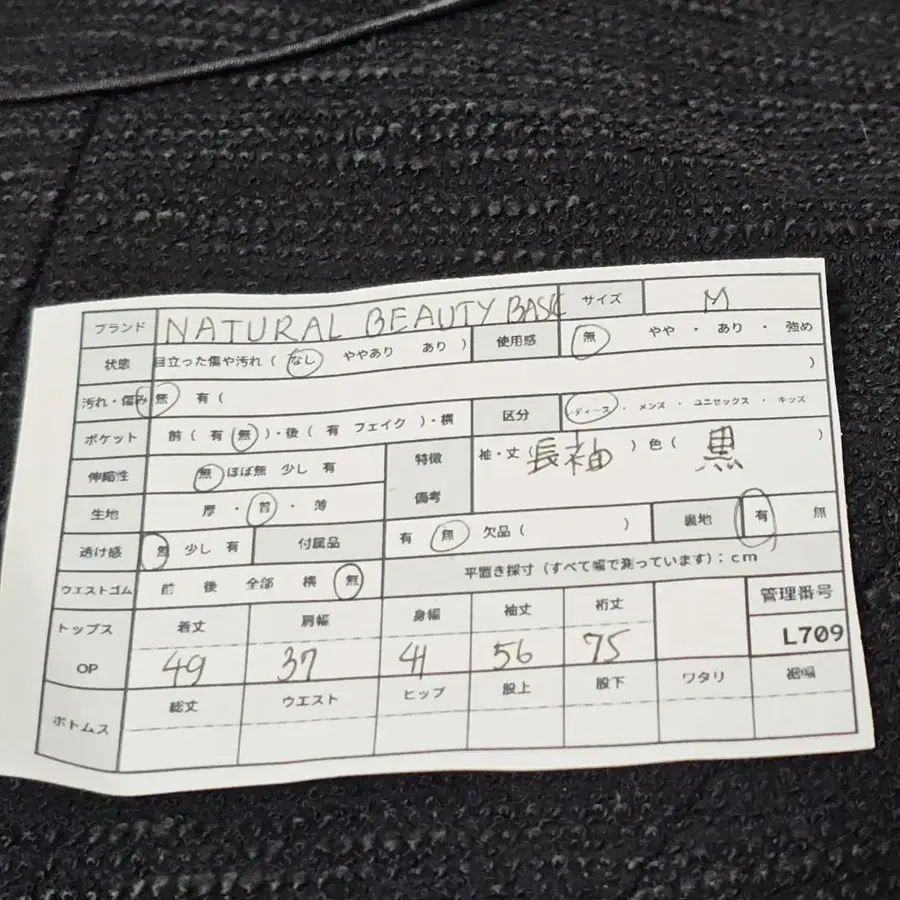 ブランド NATURAL BEAUTY BASIC サイズ M
状態 目立った傷や汚れ ( なし ややあり あり ) 使用感 無 やや ・ あり ・ 強め
汚れ・傷み 無 有 ( )
ポケット 前 ( 有 無 )・後 ( 有 フェイク )・横 区分 レディース ・ メンズ ・ ユニセックス ・ キッズ
伸縮性 無 ほぼ無 少し 有 特徴 備考 袖・丈 ( 長袖 ) 色 ( 黒 )
生地 厚 ・ 普 ・ 薄
透け感 無 少し 有 付属品 有 無 欠品 ( ) 裏地 有 無
ウエストゴム 前 後 全部 横 無 平置き採寸 (すべて幅で測っています) : cm
トップス OP 着丈 肩幅 身幅 袖丈 裄丈 管理番号
49 37 41 56 75 L709
ボトムス 総丈 ウエスト ヒップ 股上 股下 ワタリ 裾幅